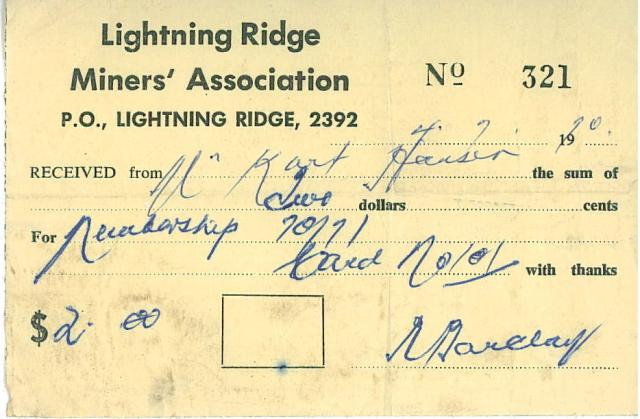 Lightning Ridge
Miners' Association
Nº 321
P.O., LIGHTNING RIDGE, 2392
7. 7. 1970.
RECEIVED from Mr Kurt Hansen the sum of
Two dollars cents
For Membership 70/71
Card No 101 with thanks
$2.00
R Barclay